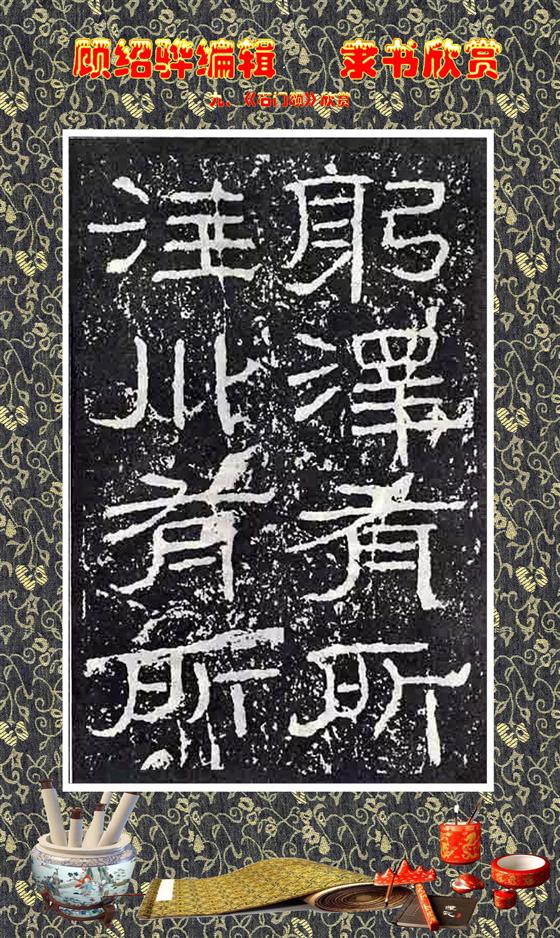 顾绍骅编辑 隶书欣赏
九、《石门颂》欣赏
躬澤有所
注川有所